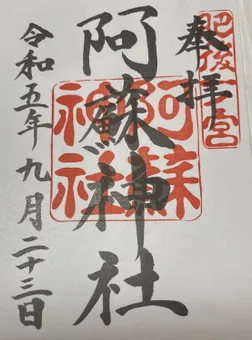 肥後一宮
奉拝
阿蘇神社
阿蘇神社
令和五年九月二十三日